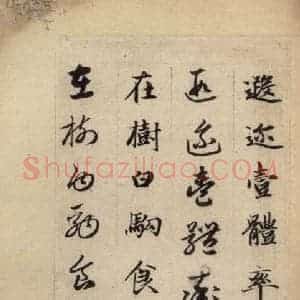 遐迩壹體率
遐迩壹體率
在樹白駒食
在樹白駒食
Shufaziliao.com